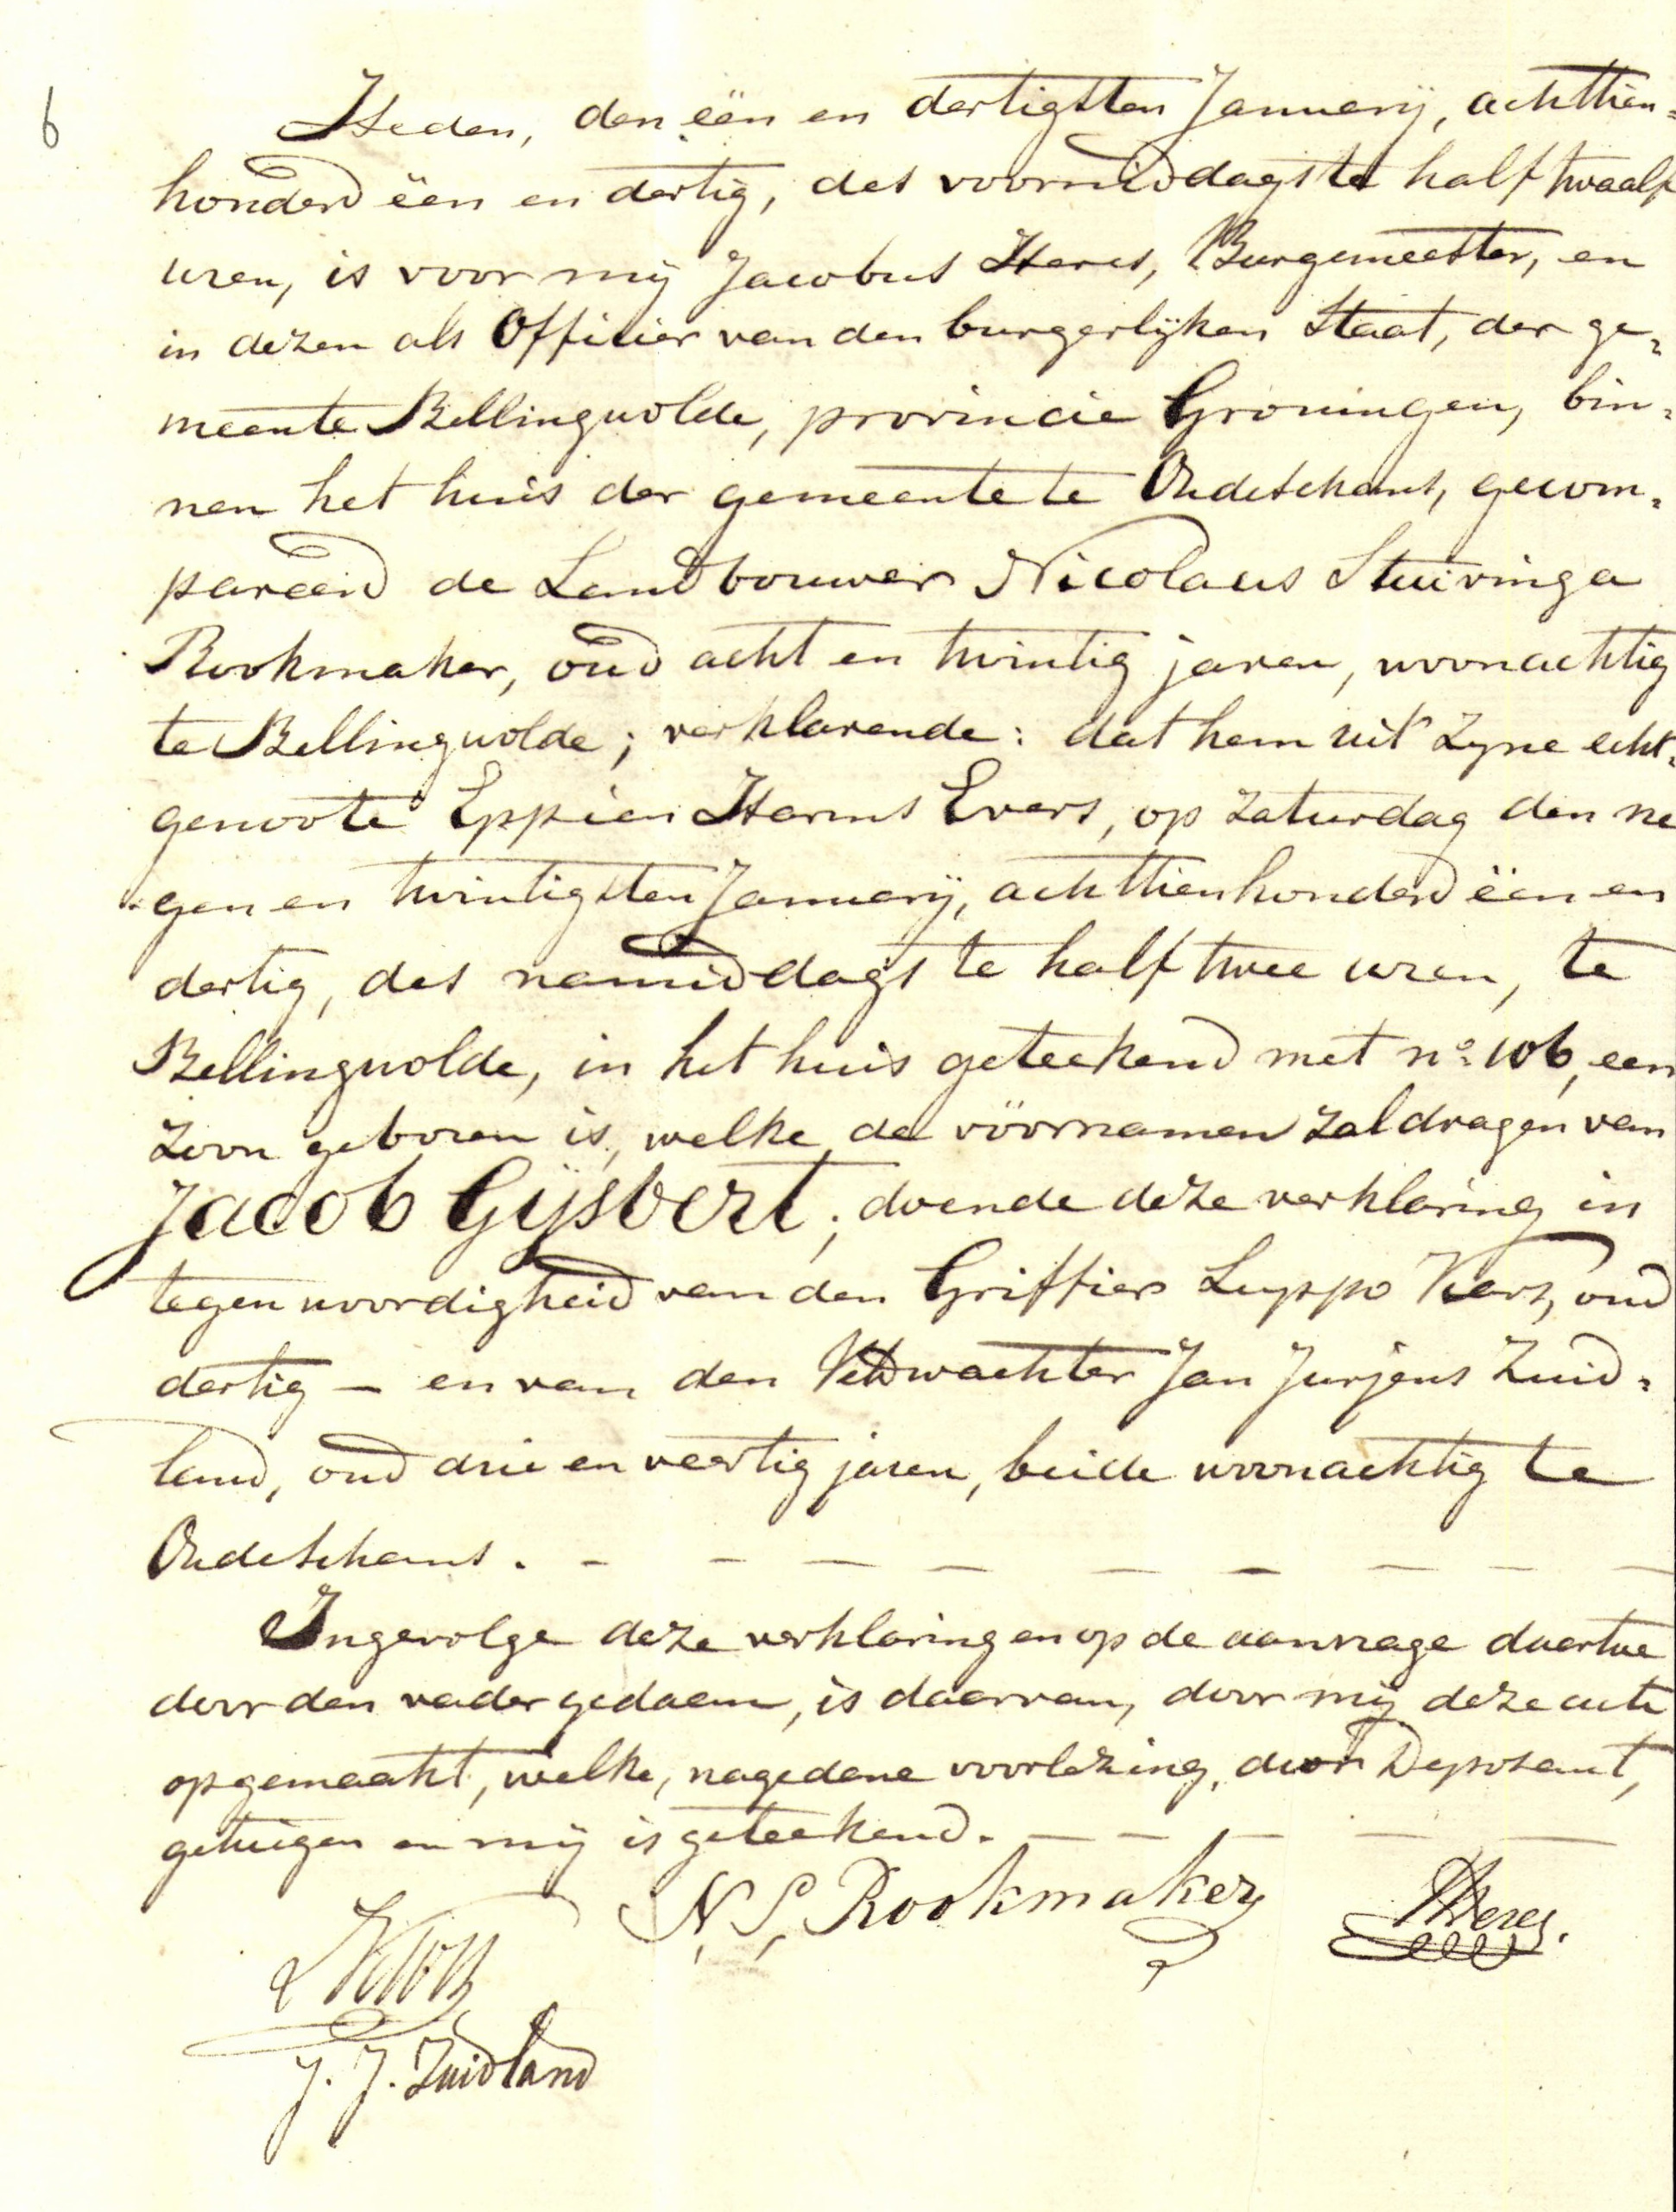 6
Heden, den één en dertigsten Januarij, achttien=
honderd één en dertig, des voormiddags te half twaalf
uren, is voor mij Jacobus Heres, Burgemeester, en
in dezen als Officier van den burgerlijken Staat, der ge=
meente Bellingwolde, provincie Groningen, bin=
nen het huis der gemeente te Oudeschans, gecom=
pareerd de Landbouwer Nicolaus Stuivinga
Rookmaker, oud acht en twintig jaren, woonachtig
te Bellingwolde; verklarende: dat hem uit zijne echt=
genoote Eppien Harms Evers, op zaturdag den ne
gen en twintigsten Januarij, achttienhonderd één en
dertig, des namiddags te half twee uren, te
Bellingwolde, in het huis geteekend met no. 106, een
zoon geboren is, welke de vöornamen zal dragen van
Jacob Gijsbert; doende deze verklaring in
tegenwoordigheid van den Griffier Luppo Kerz, oud
dertig – en van den Veldwachter Jan Jurjens Zuid=
land, oud drie en veertig jaren, beide woonachtig te
Oudeschans. – – – – – – – – –
Ingevolge deze verklaring en op de aanvrage daartoe
door den vader gedaan, is daarvan, door mij deze acte
opgemaakt, welke, nagedane voorlezing, door Deposant,
getuigen en mij is geteekend. – – – – –
N. S. Rookmaker JHeres.
J. J. Zuidland